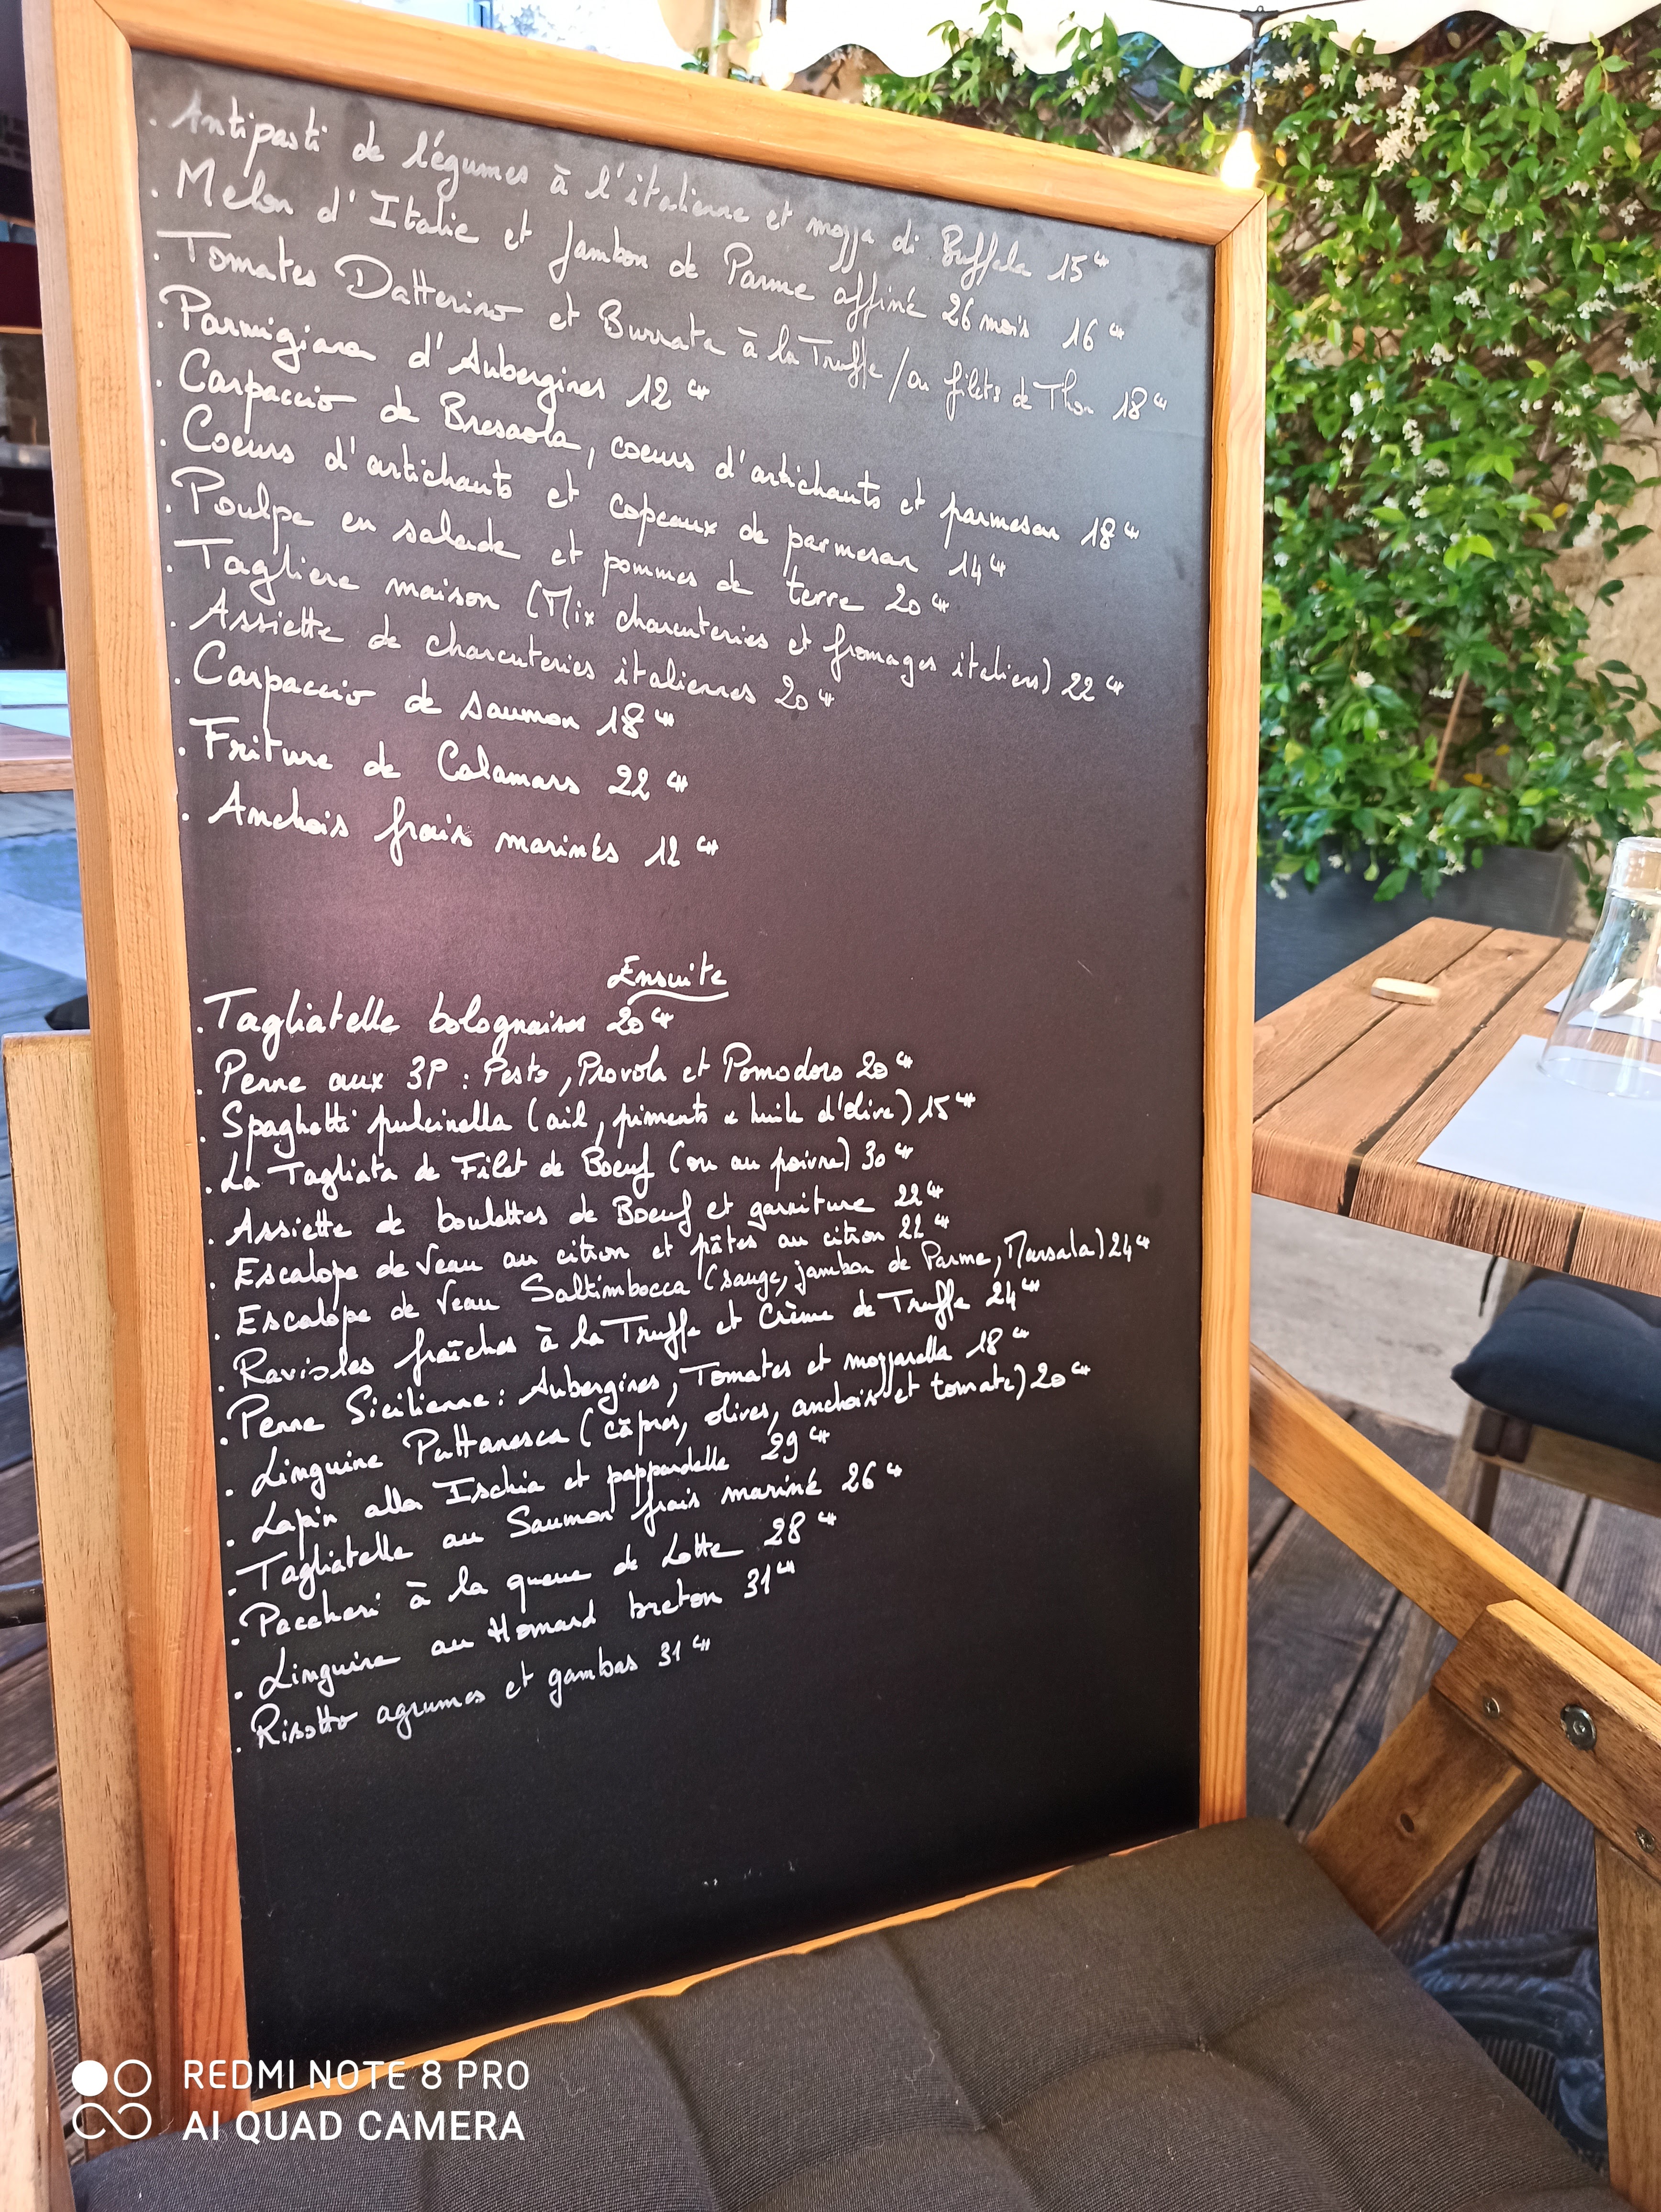 . Antipasti de légumes à l'italienne et mozza di Buffala 15€
. Melon d'Italie et Jambon de Parme affiné 26 mois 16€
. Tomates Datterino et Burrata à la Truffe / ou filets de Thon 18€
. Parmigiana d'Aubergines 12€
. Carpaccio de Bresaola, coeurs d'artichauts et parmesan 18€
. Coeurs d'artichauts et copeaux de parmesan 14€
. Poulpe en salade et pommes de terre 20€
. Tagliere maison (Mix charcuteries et fromages italiens) 22€
. Assiette de charcuteries italiennes 20€
. Carpaccio de saumon 18€
. Friture de Calamars 22€
. Anchois frais marinés 12€
Ensuite
. Tagliatelle bolognaises 20€
. Penne aux 3P : Pesto, Provola et Pomodoro 20€
. Spaghetti pulcinella (ail, piments & huile d'olive) 15€
. La Tagliata de Filet de Boeuf (ou au poivre) 30€
. Assiette de boulettes de Boeuf et garniture 22€
. Escalope de Veau au citron et pâtes au citron 22€
. Escalope de Veau Saltimbocca (sauge, jambon de Parme, Marsala) 24€
. Ravioles fraîches à la Truffe et Crème de Truffe 24€
. Penne Sicilienne : Aubergines, Tomates et mozzarella 18€
. Linguine Puttanesca (câpres, olives, anchois et tomate) 20€
. Lapin alla Ischia et pappardelle 29€
. Tagliatelle au Saumon frais mariné 26€
. Paccheri à la queue de Lotte 28€
. Linguine au Homard breton 31€
. Risotto agrumes et gambas 31€
REDMI NOTE 8 PRO
AI QUAD CAMERA